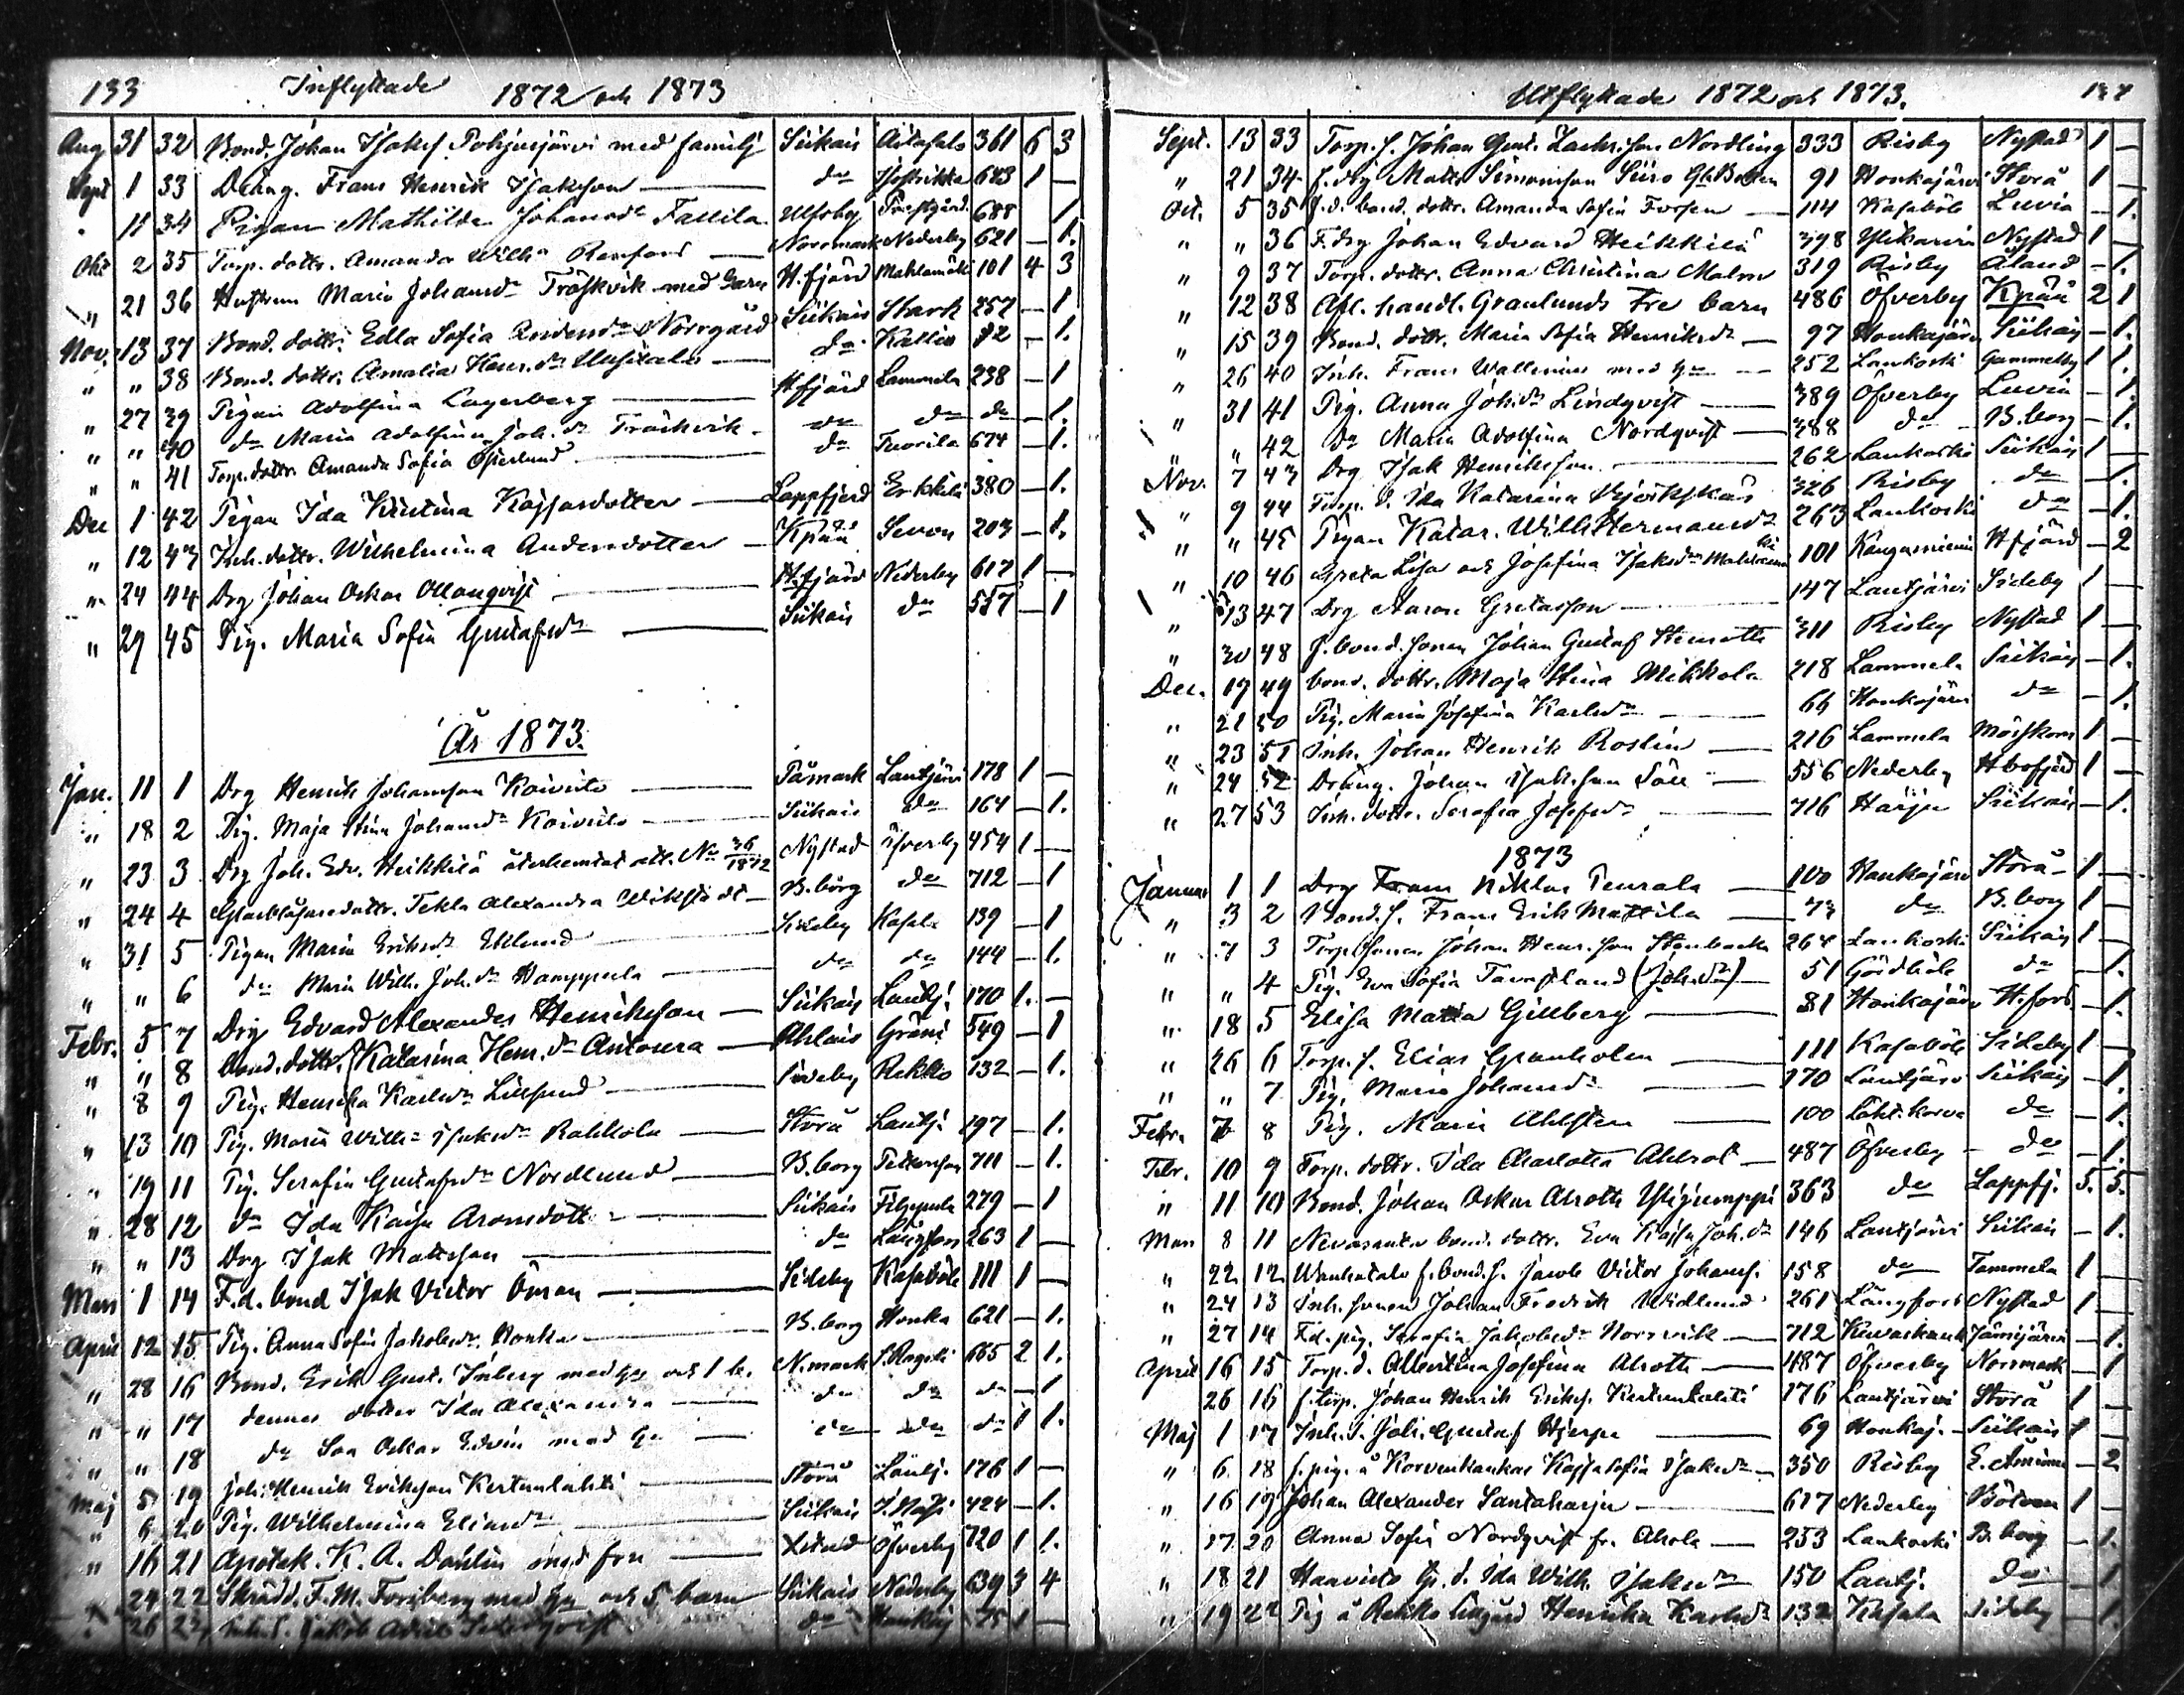 133 Inflyttade 1872 och 1873
Aug 31 32 Bond. Johan Isaksf Pohjusjärvi med familj Siikais 361 6 3
Sept 1 33 Dräng. Frans Henrik Isaksson — do 1 —
" 11 34 Pigan Mathilda Johansdr Fallila Ulfsby Prestgård. 688 1
Okt 2 35 Torp. dottr. Amanda Wilhа Norrmark Nederby 621 — 1.
" 21 36 Hustrun Maria Johansdr Träskvik med barn H.fjärd 101 4 3
Nov. 13 37 Bond. dottr. Edla Sofia Andersdr Norrgård Siikais Stark 257 — 1
" " 38 Bond. dottr. Amalia Henr. dr Uusitalo — do Kallio 92 — 1.
" 27 39 Pigan Adolfina Lagerberg — H.fjärd Lammela 238 — 1
" " 40 do Maria Adolfina Joh. dr Träskvik — do do do — 1.
" " 41 Torp. dottr. Amanda Sofia Österlund — do Tuorila 674 — 1.
Dec 1 42 Pigan Ida Kristina Kajsasdotter — Lappfjerd Erkkilä 380 — 1.
" 12 43 Inh. dottr. Wilhelmina Andersdotter — Kpää 203 — 1.
" 24 44 Drg Johan Oskar Ollonqvist — H.fjärd Nederby 617 1 —
" 29 45 Pig. Maria Sofia Gustafsdr — Siikais do 557 — 1
År 1873.
Jan. 11 1 Drg Henrik Johansson Koivisto — Påmark Lautjärvi 178 1 —
" 18 2 Pig. Maja Stina Johansdr Koivisto — Siikais do 164 — 1.
" 23 3 Drg Joh. Edv. Heikkilä återhemtat att. No 36/1872 Nystad Öfverby 454 1 —
" 24 4 Glasblåsaredottr. Tekla Alexandra — B.borg do 712 — 1
" 31 5 Pigan Maria Eriksdr Eklund — Sideby Kasala 139 — 1
" " 6 do Maria Wilh. Joh. dr Hamppula — do do 144 — 1.
Febr. 5 7 Drg Edvard Alexander Henriksson — Siikais Lautj. 170 1. —
" " 8 bond. dottr. Katarina Henr. dr Antoura — Ahlais 549 — 1
" 8 9 Pig. Henrika Karlsdr Lillsund — Sideby Rekko 132 — 1.
" 13 10 Pig. Maria Wilhа Isaksdr Rahkola — Storå Lautj. 197 — 1.
" 19 11 Pig. Serafia Gustafsdr Nordlund — B.borg 711 — 1.
" 28 12 do Ida Kajsa Aronsdott. — Siikais Filppula 279 — 1
" " 13 Drg Isak Matsson — do Långfors 263 1 —
Mars 1 14 F.d. bond Isak Victor Öman — Sideby Kasaböle 111 1 —
April 12 15 Pig. Anna Sofia Jakobsdr Honka — B.borg Honka 621 — 1.
" 28 16 Bond. Erik Gust. Inberg med hu och 1 b. N.mark 665 2 1.
" " 17 dennes dotter Ida Alexandra — do do do — 1
" " 18 do Son Oskar Edvin med hu — do do do 1 1.
Maj 5 19 Joh. Henrik Eriksson Kertunlahti — Storå Lautj. 176 1 —
" 6 20 Pig. Wilhelmina Eliasdr — Siikais 424 — 1.
" 16 21 Apotek. K. A. Dahlin med fru — Xstad Öfverby 720 1 1.
" 24 22 Skrädd. F. M. Forsberg med hu och 5 barn Siikais Nederby 639 3 4
" 26 23 Inh. S. Jakob do 75 1 —
Utflyttade 1872 och 1873. 134
Sept. 13 33 Torp. s. Johan Gust. Zachrisson Nordling 333 Risby Nystad 1 —
" 21 34 f. drg Matts Simonsson Siiro 91 Honkajärvi Storå 1 —
Oct. 5 35 f.d. bond. dottr. Amanda Sofia Forsén — 114 Kasaböle Luvia — 1.
" " 36 F. drg Johan Edvard Heikkilä 398 Nystad 1 —
" 9 37 Torp. dottr. Anna Christina Malm 319 Risby Åland — 1.
" 12 38 Afl. handl. Granlunds tre barn 486 Öfverby Kpää 2 1
" 15 39 Bond. dottr. Maria Sofia Henriksdr — 97 Honkajärvi Siikais — 1.
" 26 40 Inh. Frans Wallenius med hu — 252 Lankoski Gammelby 1 1.
" 31 41 Pig. Anna Johsdr Lindqvist — 389 Öfverby Luvia — 1.
" " 42 do Maria Adolfina Nordqvist — 388 do B.borg — 1.
Nov. 7 43 Drg Isak Henriksson — 262 Lankoski Siikais 1 —
" 9 44 Torp. d. Ida Katarina 326 Risby do — 1.
" " 45 Pigan Katar. Wilh. Hermansdr 263 Lankoski do — 1.
" 10 46 Greta Lisa och Josefina Isaksdr 101 Kangasniemi H.fjärd — 2
" 13 47 Drg Aaron Gretasson — 147 Lautjärvi Sideby 1 —
" 30 48 f. bond. sonen Johan Gustaf 311 Risby Nystad 1 —
Dec. 17 49 bond. dottr. Maja Stina Mikkola 218 Lammela Siikais — 1.
" 21 50 Pig. Maria Josefina Karlsdr — 66 Honkajärvi do — 1.
" 23 51 Inh. Johan Henrik Roslin — 216 Lammela Moiskom 1 —
" 24 52 Dräng. Johan Isaksson — 556 Nederby Hbofjärd 1 —
" 27 53 Inh. dottr. Serafia Josefsdr — 716 Härju Siikais — 1.
1873
Januar 1 1 Drg Frans Niklas Peurala — 100 Honkajärvi Storå — 1 —
" 3 2 Bond. s. Frans Erik Mattila — 73 do B.borg 1 —
" 7 3 Torp. sonen Johan Henr. son Stenbacka 264 Lankoski Siikais 1 —
" " 4 Pig. Eva Sofia Tavastland (Johsdr) — 51 Gördböle do — 1.
" 18 5 Elisa Maria Gillberg — 81 Honkajärvi H.fors — 1.
" 26 6 Torp. s. Elias Granholm — 111 Kasaböle Sideby 1 —
" " 7 Pig. Maria Johansdr — 170 Lautjärv Siikais — 1.
Febr. 7 8 Pig. Maria Ahlsten — 100 do — 1.
Febr. 10 9 Torp. dottr. Ida Charlotta Ahlrot — 487 Öfverby do — 1.
" 11 10 Bond. Johan Oskar Alroth 363 do Lappfj. 5. 5.
Mars 8 11 Nevasaaka bond. dottr. Eva Kajsa Joh. dr 146 Lautjärvi Siikais — 1.
" 22 12 Wanhatalo f. bond. s. Jacob Victor Johanss. 158 do Tammela 1 —
" 24 13 Inh. sonen Johan Fredrik Widlund 261 Långfors Nystad 1 —
" 27 14 F.d. pig. Serafia Jakobsdr Norrvik — 712 Jämijärvi — 1.
April 16 15 Torp. d. Albertina Josefina Alroth — 487 Öfverby Norrmark — 1
26 16 f. torp. Johan Henrik Erikss. Kertunlahti 176 Lautjärvi Storå 1 —
Maj 1 17 Inh. s. Joh. Gustaf Hjerpe — 69 Honkaj. Siikais 1
" 6 18 f. pig. å Korvenkankas Kajsa Sofia Isaksdr — 350 Risby E. Åminne — 2
" 16 19 Johan Alexander Santaharju — 617 Nederby 1 —
" 17 20 Anna Sofia Nordqvist fr. Ahola — 253 Lankoski B.borg — 1.
" 18 21 Haavisto tp. d. Ida Wilh. Isaksdr 150 Lautj. do — 1
" 19 22 Pig å Rekko Henrika Karlsdr 132 Kasala Sideby — 1.